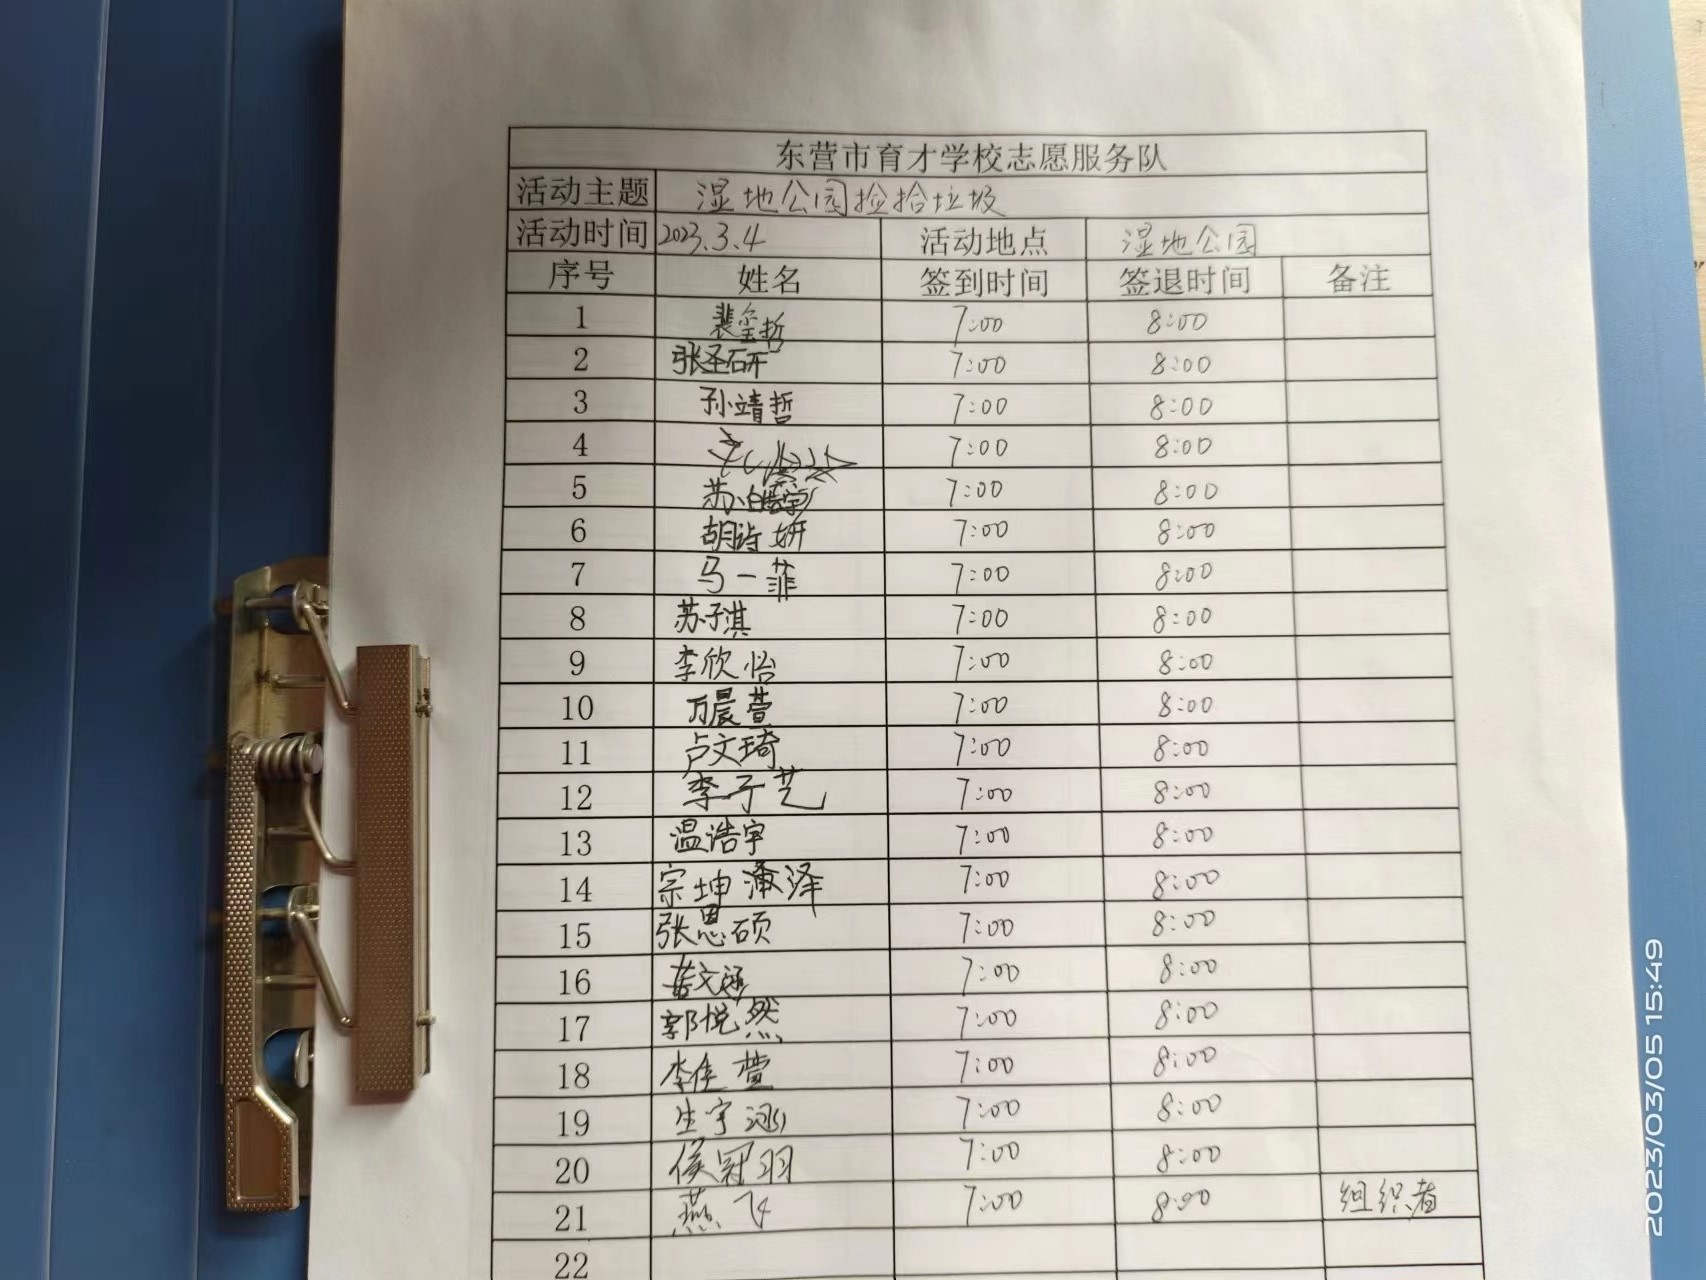 东营市育才学校志愿服务队
活动主题 湿地公园捡拾垃圾
活动时间 2023.3.4 活动地点 湿地公园
序号 姓名 签到时间 签退时间 备注
1 裴玺哲 7:00 8:00
2 张圣研 7:00 8:00
3 孙靖哲 7:00 8:00
4 7:00 8:00
5 苏 7:00 8:00
6 胡诗妍 7:00 8:00
7 马一菲 7:00 8:00
8 苏子淇 7:00 8:00
9 李欣怡 7:00 8:00
10 万晨萱 7:00 8:00
11 卢文琦 7:00 8:00
12 李子艺 7:00 8:00
13 温浩宇 7:00 8:00
14 宗坤 泽 7:00 8:00
15 张恩硕 7:00 8:00
16 文涵 7:00 8:00
17 郭悦然 7:00 8:00
18 李佳萱 7:00 8:00
19 生宇涵 7:00 8:00
20 侯冠羽 7:00 8:00
21 燕飞 7:00 8:00 组织者
22
2023/03/05 15:49